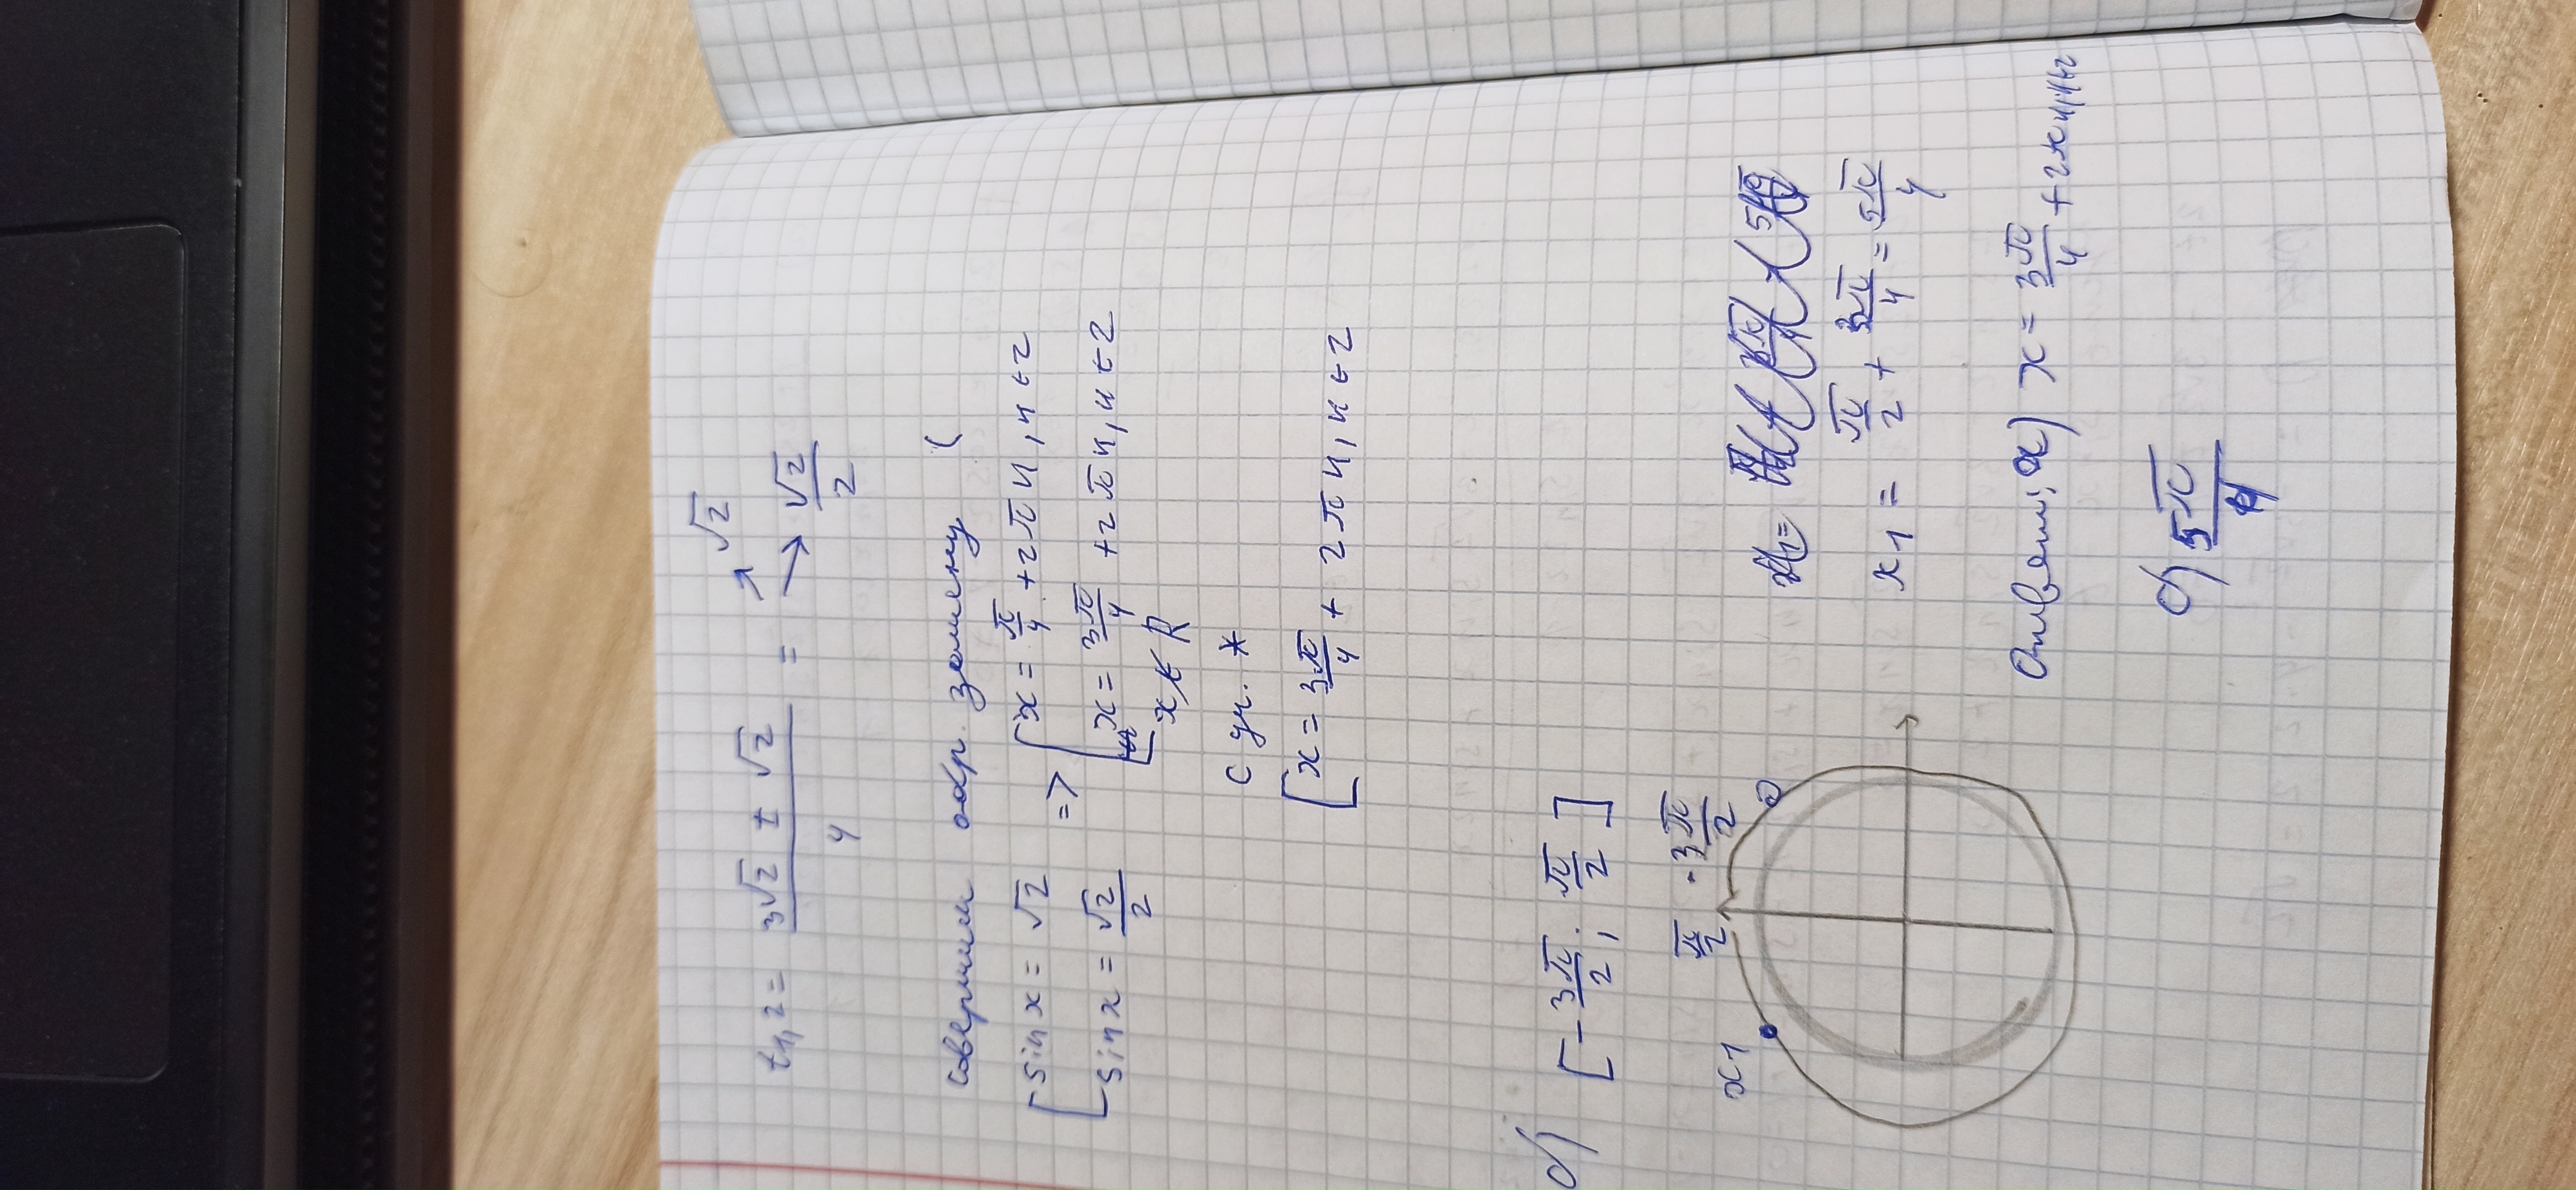 t₁,₂ = (3√2 ± √2)/4 = ↗ √2 → √2/2
совершим обр. замену (
[ sin x = √2 => [ x = π/4 + 2πn, n ∈ Z
sin x = √2/2 x = 3π/4 + 2πn, n ∈ Z
x ∉ R
с уч. *
[ x = 3π/4 + 2πn, n ∈ Z
б) [-3π/2; π/2]
π/2 -3π/2
x1
x1 = π/2 + 3π/4 = 5π/4
Ответ: а) x = 3π/4 + 2πn, n ∈ Z
б) 5π/4